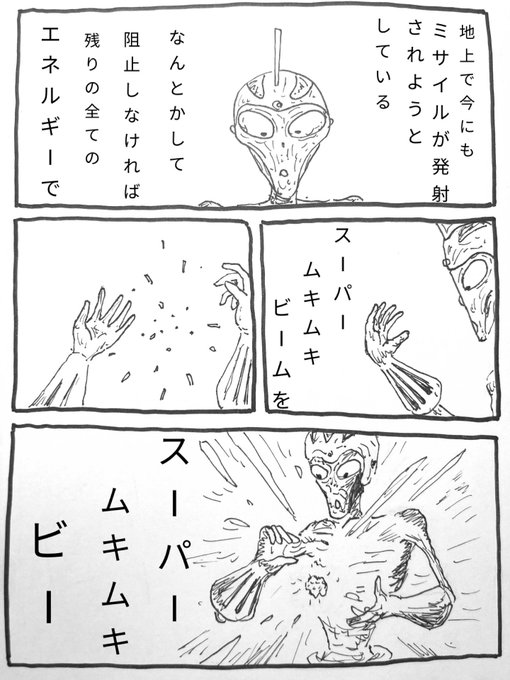 地上で今にも
ミサイルが発射
されようと
している
なんとかして
阻止しなければ
残りの全ての
エネルギーで
スーパー
ムキムキ
ビームを
スーパー
ムキムキ
ビー